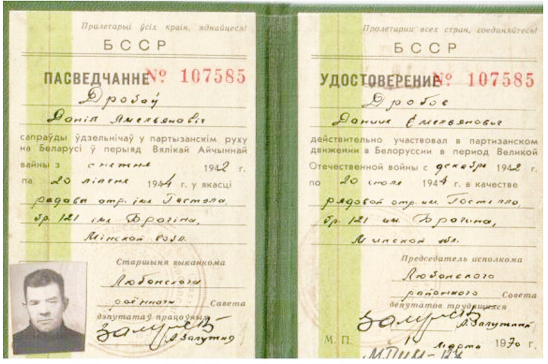 Пралетарыі ўсіх краін, яднайцеся!
БССР
ПАСВЕДЧАННЕ № 107585
Дробаў
Даніл Амельянавіч
сапраўды ўдзельнічаў у партызанскім руху
на Беларусі ў перыяд Вялікай Айчыннай
вайны з снежня 1942 г.
па 20 ліпеня 1944 г. у якасці
радавы атр. ім. Гастэла,
бр. 121 ім. Брагіна,
Мінскай вобл.
Старшыня выканкома
Любанскага
раённага Савета
дэпутатаў працоўных
А. Залуцкі
Пролетарии всех стран, соединяйтесь!
БССР
УДОСТОВЕРЕНИЕ № 107585
Дробов
Данил Емельянович
действительно участвовал в партизанском
движении в Белоруссии в период Великой
Отечественной войны с декабря 1942 г.
по 20 июля 1944 г. в качестве
рядовой отр. им. Гастелло,
бр. 121 им. Брагина,
Минской обл.
Председатель исполкома
Любанского
районного Совета
депутатов трудящихся
А. Залуцкий
М. П. марта 1970 г.